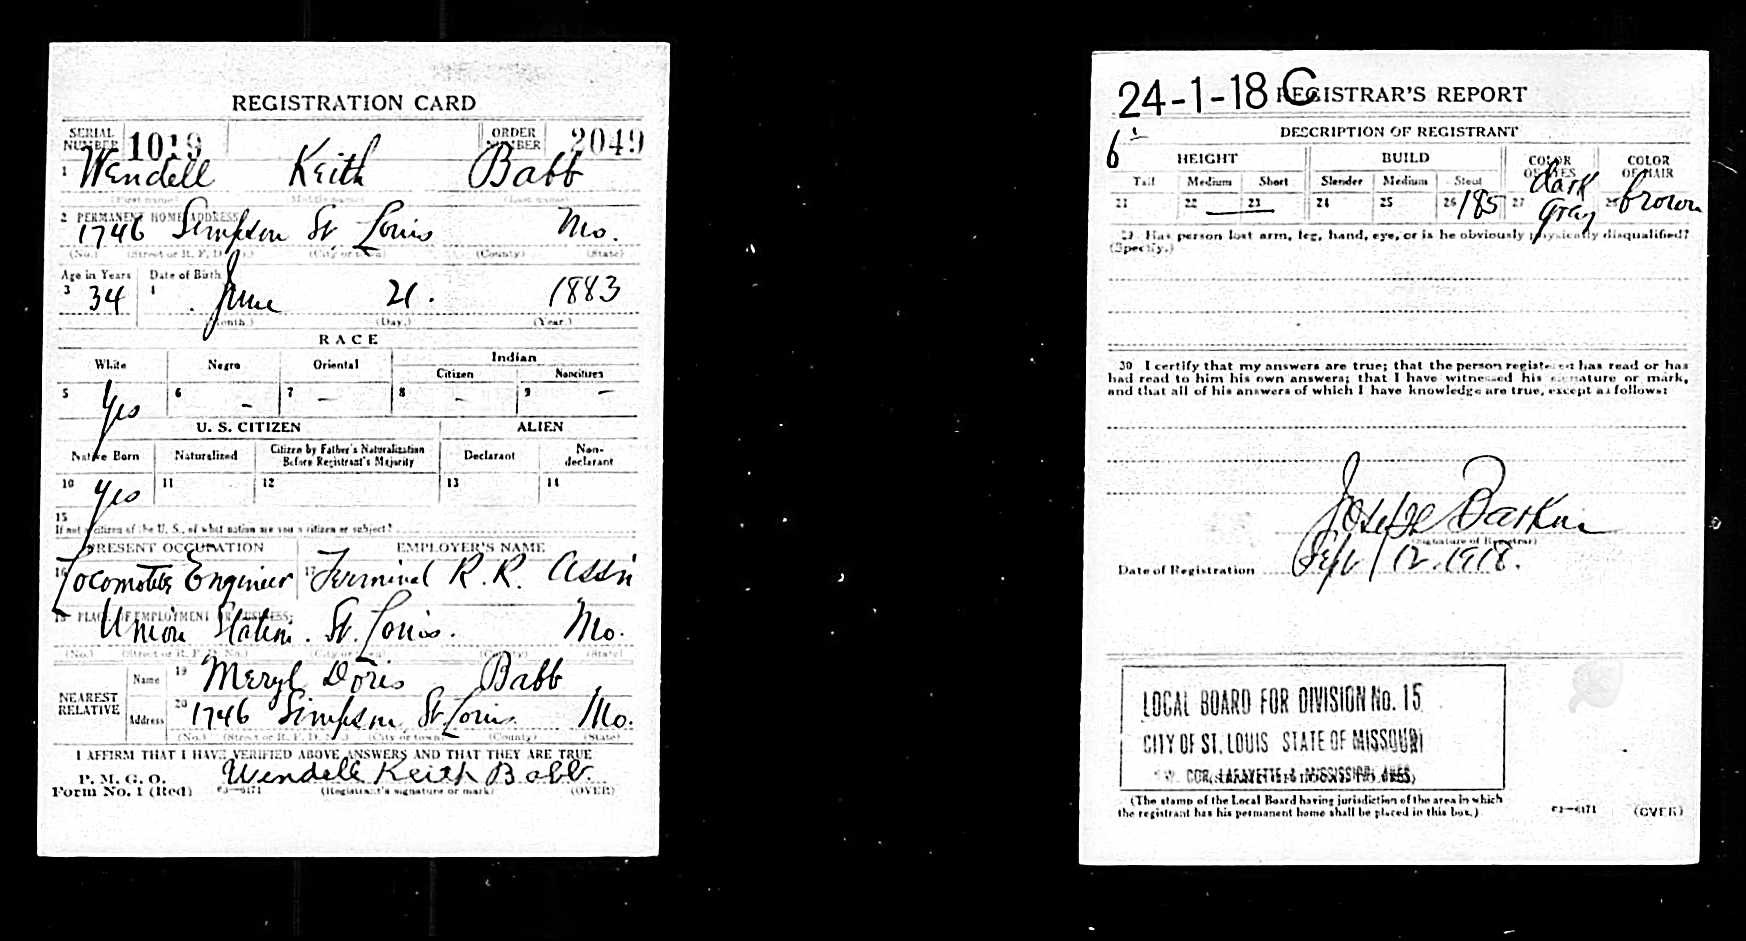 REGISTRATION CARD
SERIAL NUMBER 1019 ORDER NUMBER 2049
1 Wendell Keith Babb
(First name) (Middle name) (Last name)
2 PERMANENT HOME ADDRESS:
1746 Simpson St. Louis Mo.
(No.) (Street or R. F. D. No.) (City or town) (County) (State)
Age in Years Date of Birth
3 34 4 June 21. 1883
(Month.) (Day.) (Year.)
RACE
White Negro Oriental Indian
Citizen Noncitizen
5 Yes 6 - 7 - 8 - 9 -
U. S. CITIZEN ALIEN
Native Born Naturalized Citizen by Father's Naturalization Before Registrant's Majority Declarant Non-declarant
10 Yes 11 12 13 14
15
If not a citizen of the U. S., of what nation are you a citizen or subject?
PRESENT OCCUPATION EMPLOYER'S NAME
16 Locomotive Engineer 17 Terminal R. R. Assn
18 PLACE OF EMPLOYMENT OR BUSINESS:
Union Station. St. Louis. Mo.
(No.) (Street or R. F. D. No.) (City or town) (County) (State)
NEAREST RELATIVE
Name 19 Meryl Doris Babb
Address 20 1746 Simpson St. Louis Mo.
(No.) (Street or R. F. D. No.) (City or town) (County) (State)
I AFFIRM THAT I HAVE VERIFIED ABOVE ANSWERS AND THAT THEY ARE TRUE
P. M. G. O.
Form No. 1 (Red) 03—6171 Wendell Keith Babb.
(Registrant's signature or mark) (OVER)
24-1-18 C REGISTRAR'S REPORT
DESCRIPTION OF REGISTRANT
6
HEIGHT BUILD COLOR OF EYES COLOR OF HAIR
Tall Medium Short Slender Medium Stout
21 22 23 24 25 26 185 27 dark gray 28 brown
29 Has person lost arm, leg, hand, eye, or is he obviously physically disqualified?
(Specify.)
30 I certify that my answers are true; that the person registered has read or has
had read to him his own answers; that I have witnessed his signature or mark,
and that all of his answers of which I have knowledge are true, except as follows:
(Signature of Registrar)
Date of Registration Sept 12. 1918.
LOCAL BOARD FOR DIVISION No. 15
CITY OF ST. LOUIS STATE OF MISSOURI
COR. LAFAYETTE & MISSISSIPPI AVES.
(The stamp of the Local Board having jurisdiction of the area in which
the registrant has his permanent home shall be placed in this box.)
03—6171 (OVER)